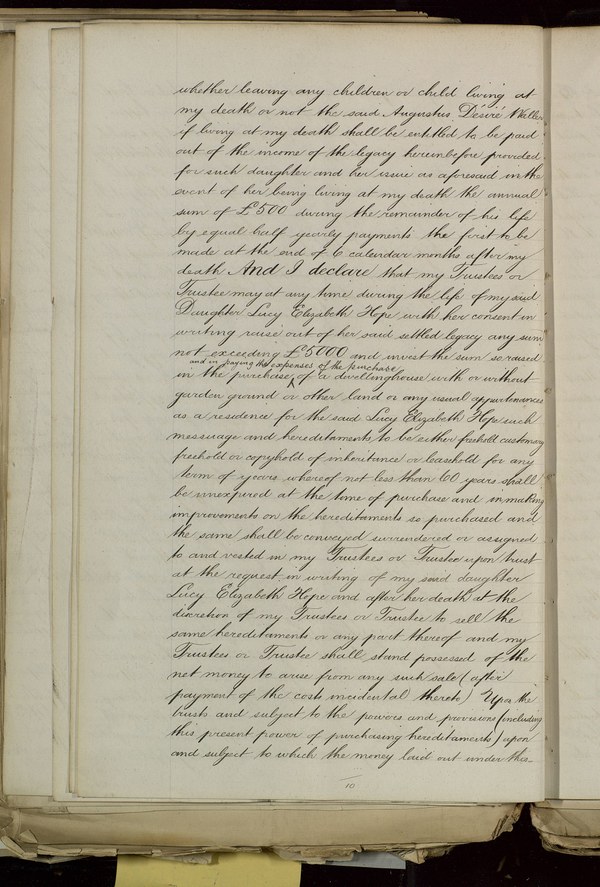 whether leaving any children or child living at
my death or not the said Augustus Désiré Waller
if living at my death shall be entitled to be paid
out of the income of the legacy hereinbefore provided
for such daughter and her issue as aforesaid in the
event of her being living at my death the annual
sum of £500 during the remainder of his life
by equal half yearly payments the first to be
made at the end of 6 calendar months after my
death And I declare that my Trustees or
Trustee may at any time during the life of my said
Daughter Lucy Elizabeth Hope with her consent in
writing raise out of her said settled legacy any sum
not exceeding £5000 and invest the sum so raised
and in paying the expenses of the purchase
in the purchase of a dwellinghouse with or without
garden ground or other land or any usual appurtenances
as a residence for the said Lucy Elizabeth Hope such
messuage and hereditaments to be either freehold customary
freehold or copyhold of inheritance or leasehold for any
term of years whereof not less than 60 years shall
be unexpired at the time of purchase and in making
improvements on the hereditaments so purchased and
the same shall be conveyed surrendered or assigned
to and vested in my Trustees or Trustee upon trust
at the request in writing of my said daughter
Lucy Elizabeth Hope and after her death at the
discretion of my Trustees or Trustee to sell the
same hereditaments or any part thereof and my
Trustees or Trustee shall stand possessed of the
net money to arise from any such sale (after
payment of the costs incidental thereto) Upon the
trusts and subject to the powers and provisions (including
this present power of purchasing hereditaments) upon
and subject to which the money laid out under this
10